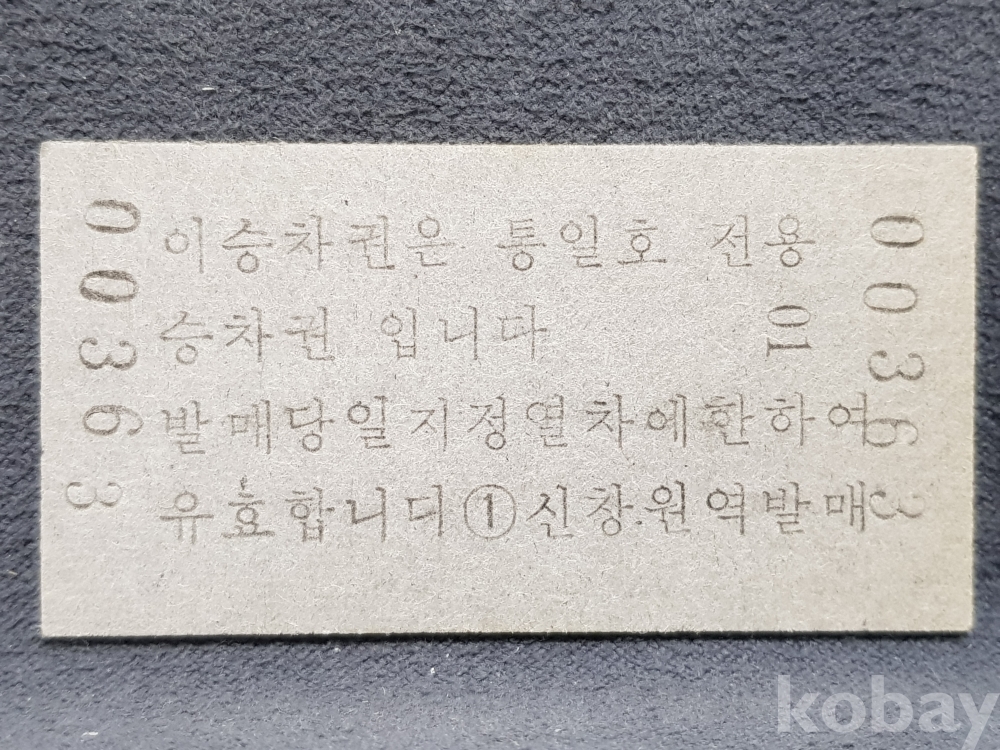 00363
이승차권은 통일호 전용
승차권 입니다
01
발매당일지정열차에한하여
유효합니디①신창.원역발매
00363
kobay